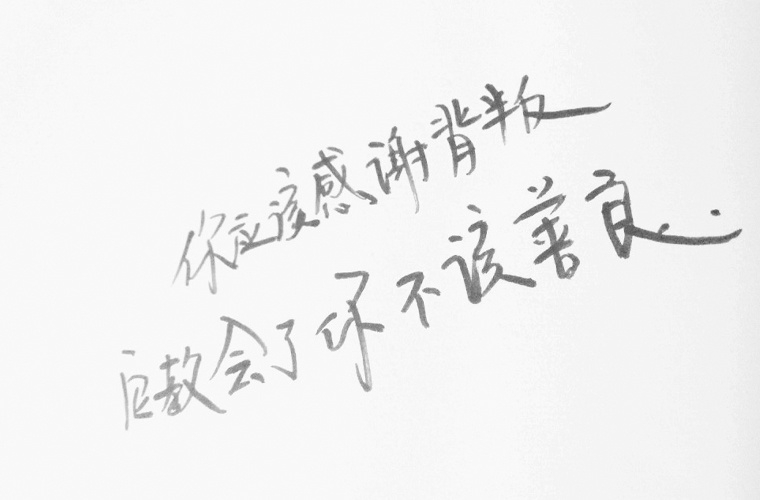 你应该感谢背叛
它教会了你不该善良.